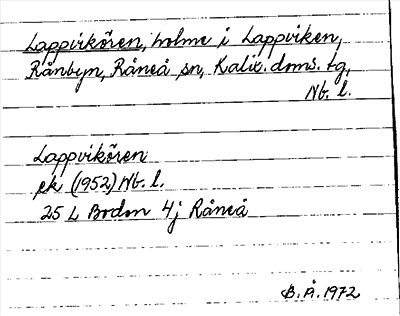 Lappvikören, holme i Lappviken,
Rånbyn, Råneå sn, Kalix. doms. tg,
Nb. l.
Lappvikören
ek (1952) Nb. l.
25 L Boden 4j Råneå
B. Å. 1972